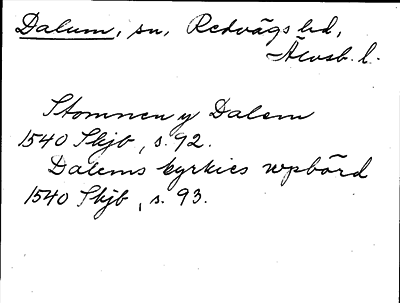 Dalum, sn, Redvägs hd,
Älvsb. l.
Stomnen y Dalem
1540 Skjb, s. 92.
Dalems kyrkies vpbörd
1540 Skjb, s. 93.